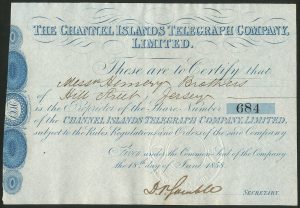 THE CHANNEL ISLANDS TELEGRAPH COMPANY,
LIMITED.
These are to Certify that
Messrs Brothers
of Hill Street Jersey
is the Proprietor of the Share Number 684
of the CHANNEL ISLANDS TELEGRAPH COMPANY, LIMITED.
subject to the Rules Regulations and Orders of the said Company
Given under the Common Seal of the Company
the 18th day of June 1858
SECRETARY.